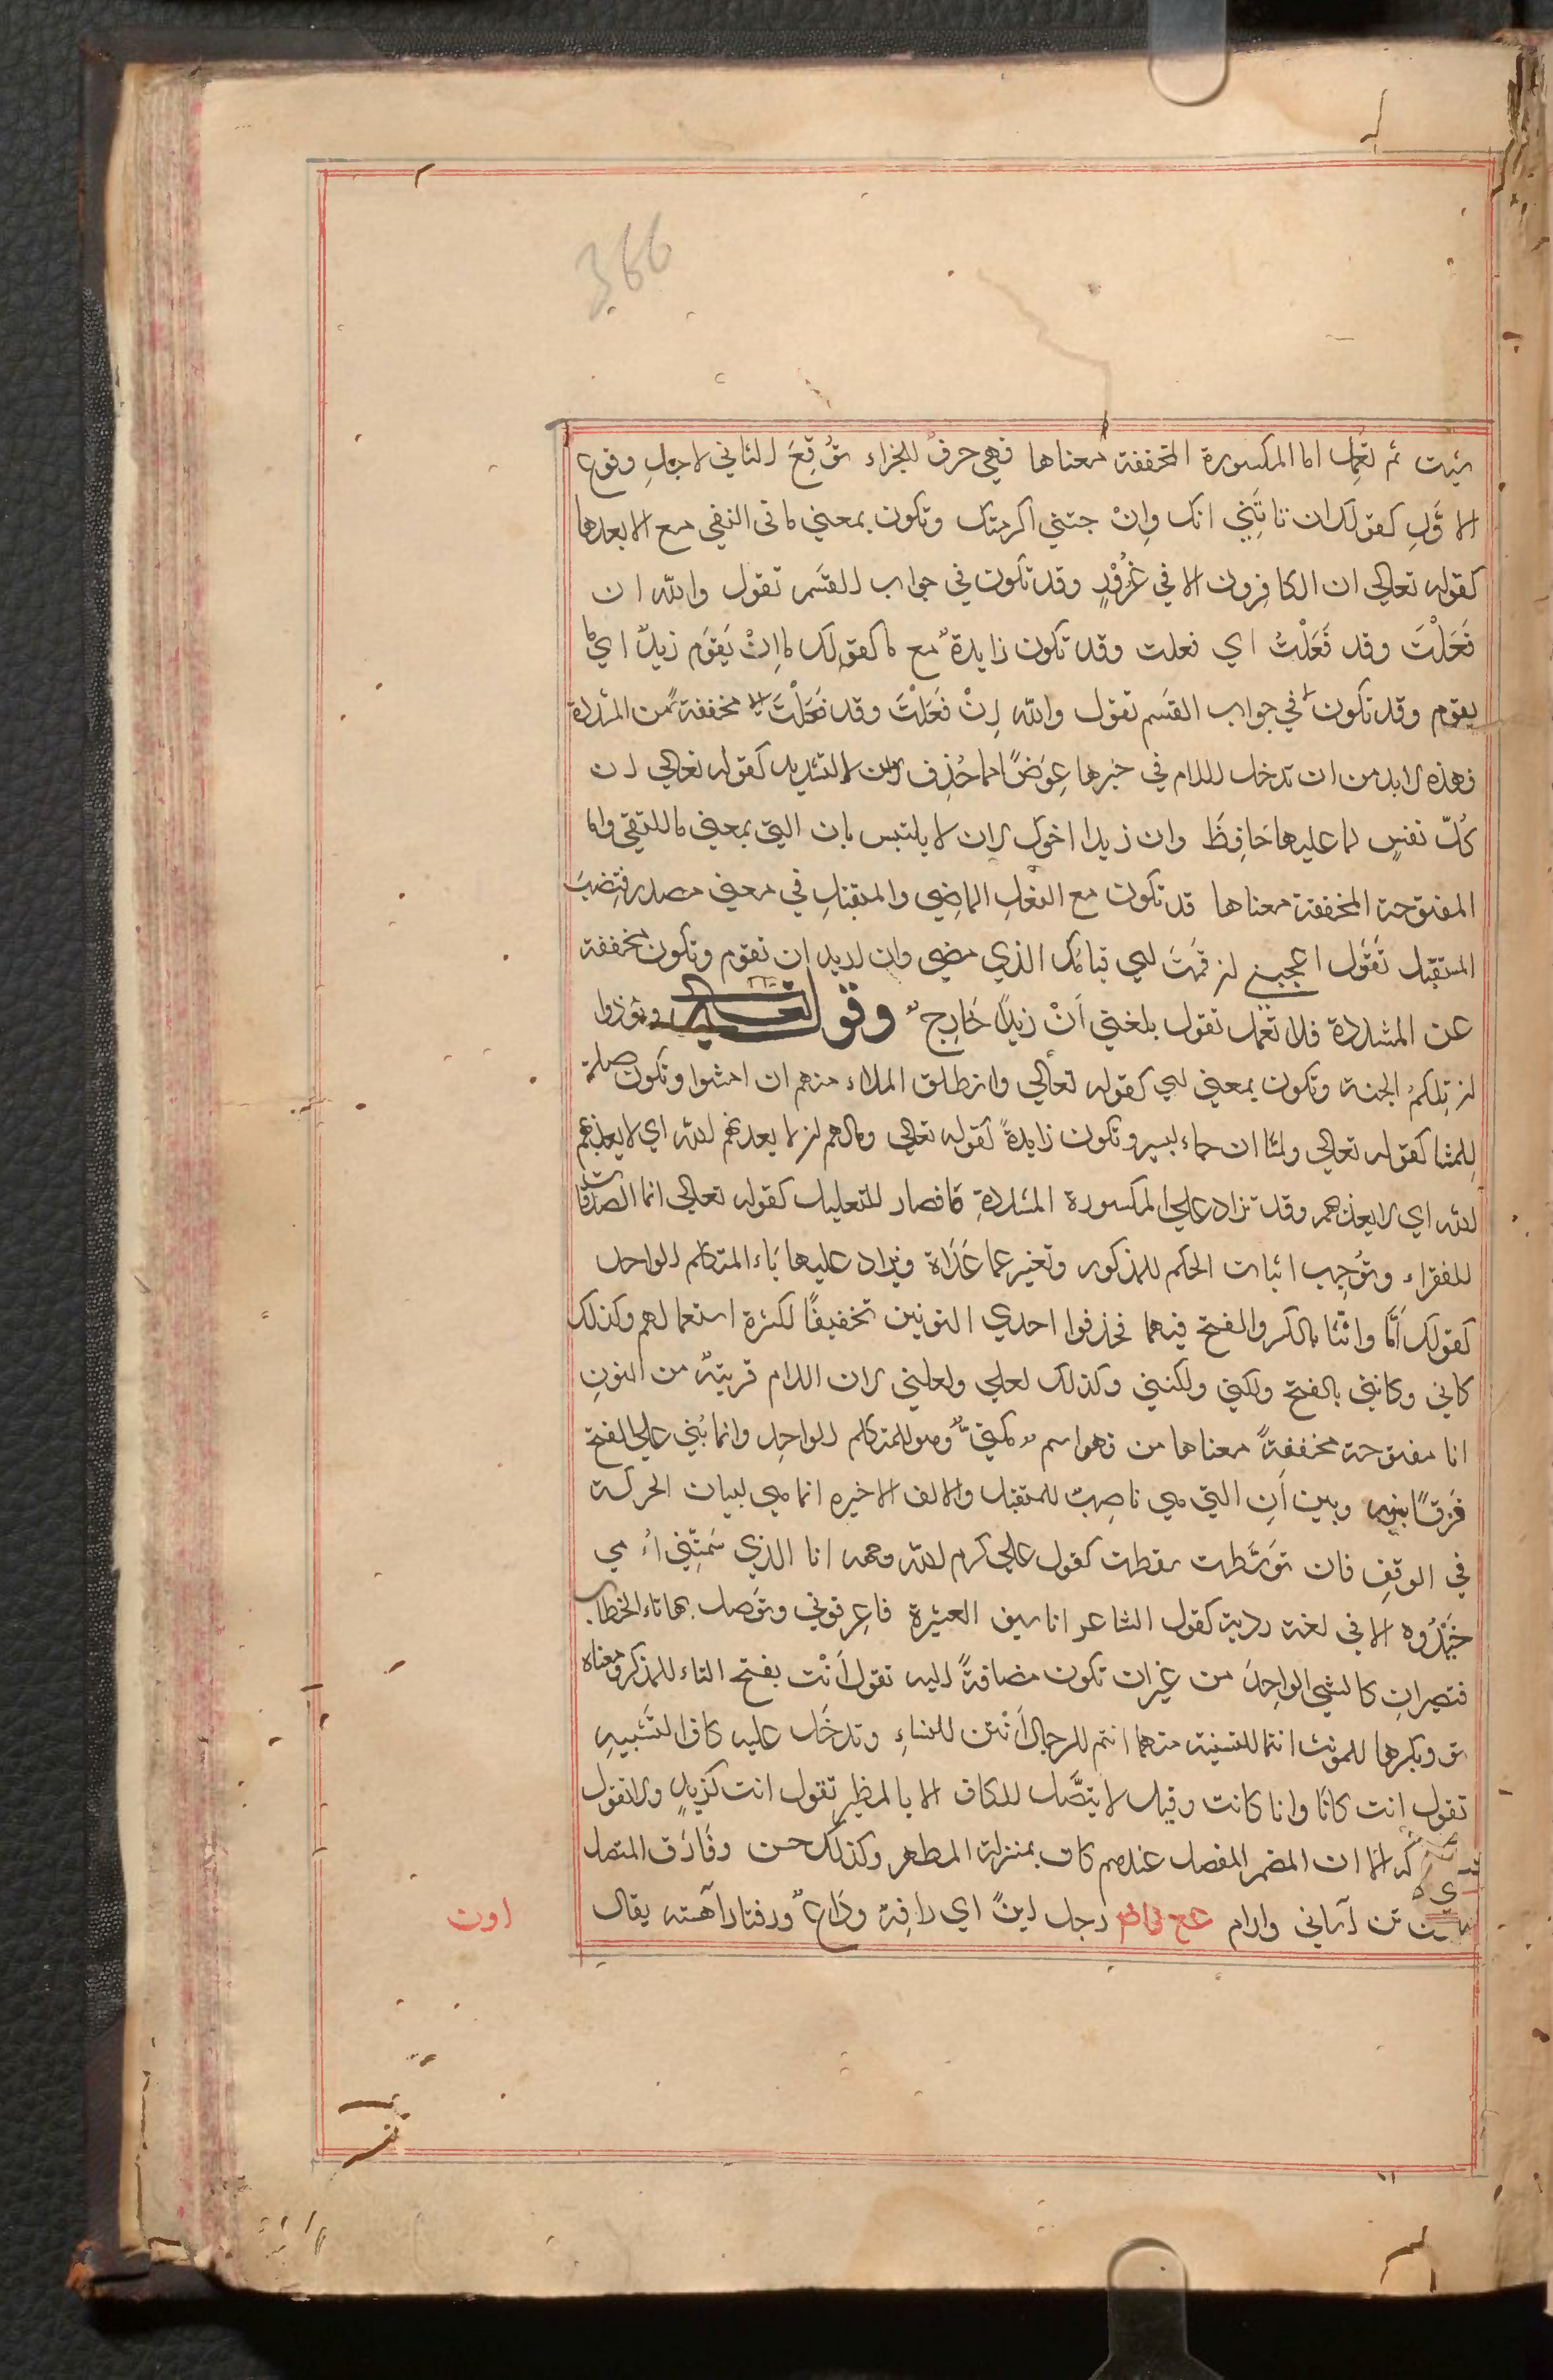 366
شيت ثم تعمل اما المكسورة المخففة معناها فهي حرف للجزاء توُقِعَ الثاني لاجلِ وقوع
الاوَّلِ كقولك ان تاتِنِي اتك وانْ جئتني اكرمتك وتكون بمعني ما في النفي مع الا بعدها
كقوله تعالي ان الكافِرون الا في غُرُوْرٍ وقد تكون في جواب القسَم تقول والله ان
فَعَلْتَ وقد فَعَلْتُ اي فعلت وقد تكون زايدةٌ مع ما كقولك ما اِنْ يَقوَم زيدٌ اي ما
يقوم وقد تكون في جواب القسَم تقول والله اِنْ فَعَلْتَ وقد فَعَلْتَ مخففةً من المشددة
فهذه لابد من ان تدخل اللام في خبرها عِوَضًا مما حُذِف من التشديد كقوله تعالي ان
كُلّ نفسٍ لما عليها حَافِظَ وان زيدا اخوك لان لا يلتبس بان التي بمعني ما للنفي واما
المفتوحة المخففة معناها قد تكون مع الفعْلِ الماضِي والمستقبلِ في معني مصدر فتِنصِبَ
المستقبل تقَوُل اعجبني ان قُمْتَ اي قيامُك الذي مضي وان اريد ان تقوم وتكون مخففة
عن المشددة فلا تعْمل تقول بلغني اَنْ زيدٌ خَارِجٌ وقوله تعالي ونودوا
ان تِلكمُ الجنة وتكون بمعني اي كقوله تعالي وانطلق الملاء منهم ان امشوا وتكون صلة
لِلمثا كقوله تعالي ولما ان جاء البشير وتكون زايدةً كقوله تعالي ومالهم ان لا يعذبهم الله اي لا يعذبهم
الله اي لا يعذبهم وقد تزاد علي المكسورة المشددةِ ما فصار للتعليل كقوله تعالي انما الصدقات
للفقراء وتوُجِب اثبات الحكم للمذكور وتغير عما عَدَاه ويزاد عليها يَاء المتكلم الواحد
كقولك اَنَّا واِنَّنَا بالكسر والفتح فيهما فحذفوا احدي النونين تخفيفًا لكثرة استعمالهم وكذلك
كاني وكانني بالفتح ولكني ولكنني وكذلك لعلي ولعلني لان اللام قريبةٌ من النونِ
انا مفتوحة مخففةً معناها من فهو اسم مَكنِيٌّ وهو للمتكلم الواحِد وانما بُنيَ علي الفتح
فَرَقًا بينه وبين اَنِ التي هي ناصِبةٌ للمستقبل والالف الاخيره انما هي لبيان الحركة
في الوقفِ فان توَسَّطت سقطت كقول علي كرم الله وجهه انا الذي سَمتِني اُمي
حَيْدُره الا في لغة ردية كقول الشاعر انا سيف العشيرة فاعِرفوني وتوَصل بها تاء الخطاب
فتصيرانِ كالشي الواحِدَ من غير ان تكون مضافةً اليه تقول اَنْت بفتح التاء للمذكر ومعناه
تو وبكسرها للمونث انتما للتثنية منهما انتم للرجال اَنْتن للنساءِ وتدخَل عليه كاف التشَبِيهِ
تقول انت كانَا وانا كانت وقيل لا يتصَّل الكاف الا بالمظهر تقول انت كزيدٍ ولا تقول
الا ان المضمر المنفصل عندهم كان بمنزلة المظهر وكذلك حسن وفَارَق المتصل
تن آساني وارام رجل اينٌ اي رافِهٌ ودَاعٌ ورفتار آهسته يقال
اون